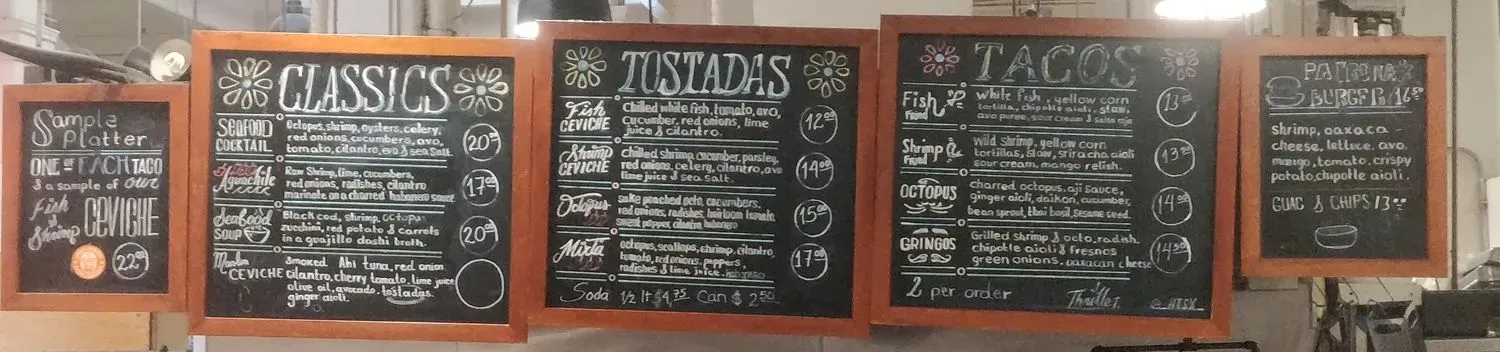 Sample
Platter
ONE OF EACH TACO
& a sample of our
Fish
&
Shrimp
CEVICHE
22⁰⁰
CLASSICS
SEAFOOD
COCKTAIL
Octopus, shrimp, oysters, celery,
red onions, cucumbers, avo,
tomato, cilantro, evo & sea salt.
20⁰⁰
Aguachile
Raw Shrimp, lime, cucumbers,
red onions, radishes, cilantro
marinate on a charred habanero sauce
17⁰⁰
Seafood
SOUP
Black cod, shrimp, octopus
zucchini, red potato & carrots
in a guajillo dashi broth.
20⁰⁰
CEVICHE
Smoked Ahi tuna, red onion
cilantro, cherry tomato, lime juice
olive oil, avocado. tostadas.
ginger aioli.
TOSTADAS
Fish
CEVICHE
Chilled white fish, tomato, avo,
cucumber, red onions, lime
juice & cilantro.
12⁰⁰
Shrimp
CEVICHE
chilled shrimp, cucumber, parsley,
red onions, celery, cilantro, avo
lime juice & sea salt.
14⁰⁰
Octopus
sake poached octo, cucumbers,
red onions, radishes, heirloom tomato
sweet pepper, cilantro, habanero
15⁰⁰
Mixta
octopus, scallops, shrimp, cilantro,
tomato, red onions, peppers,
radishes & lime juice. habanero
17⁰⁰
Soda 1/2 lt $4.75 Can $ 2.50
TACOS
Fish
Fried
White fish, yellow corn
tortilla, chipotle aioli, slaw,
avo puree, sour cream & salsa roja
13⁻
Shrimp
Fried
Wild shrimp, yellow corn
tortillas, slaw, sriracha aioli
sour cream, mango relish.
13⁵⁰
OCTOPUS
charred octopus, aji sauce,
ginger aioli, daikon, cucumber,
bean sprout, thai basil, sesame seed.
14⁰⁰
GRINGOS
Grilled shrimp & octo, radish.
chipotle aioli & fresnos
green onions. oaxacan cheese
14⁵⁰
2 per order
Thriller.
@_HTSX_
PATRONA
BURGER 16⁵⁰
shrimp, oaxaca -
cheese, lettuce, avo
mango, tomato, crispy
potato, chipotle aioli.
GUAC & CHIPS 13⁰⁰